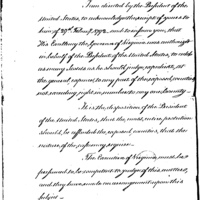 I am directed by the President of the
United States, to acknowledge the receipt of yours to
him of 29th Feb.y 1792. and to inform you, that
His Excellency the Governor of Virginia was authorized
on behalf of the President of the United States, to call
as many Scouts as he should judge expedient, at
the general expense, to any part of the exposed counties,
not exceeding eight in number, to any one County.
It is the disposition of the President
of the United States, that the most entire protection
should be afforded the exposed counties, that the
nature of the case may require.
The Executive of Virginia must be
presumed to be competent to judge of this matter,
and they have made an arrangement upon this
subject